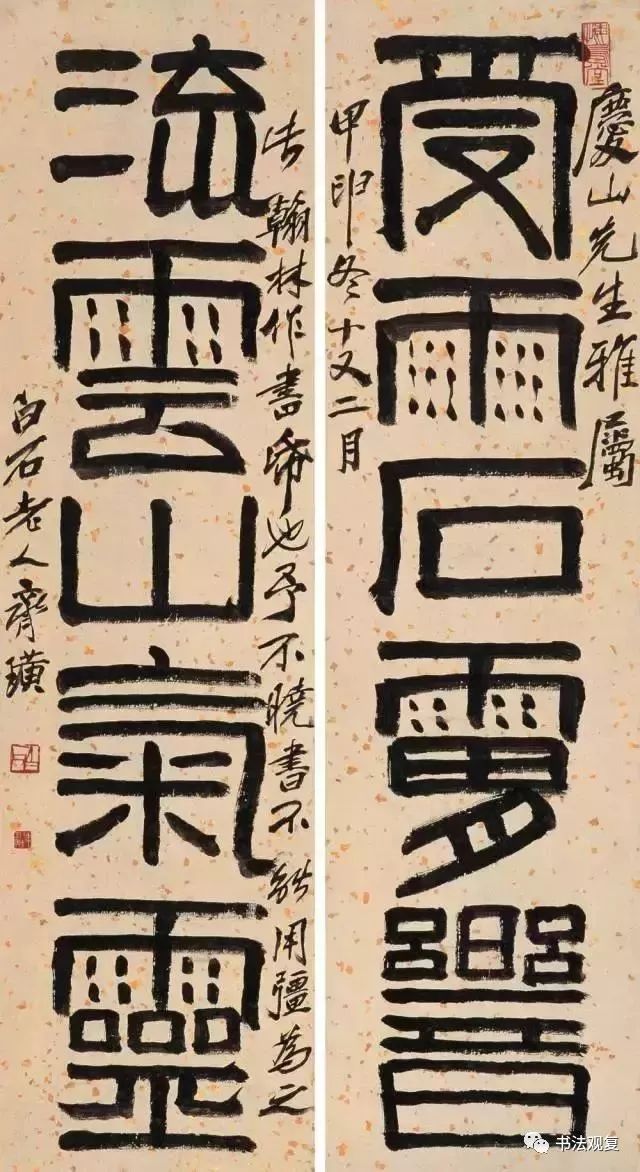 慶山先生雅屬
受雨石
甲申冬十又二月
翰林作書也予不曉書不能用疆為之
流雲山氣靈
白石老人齊璜
书法观复